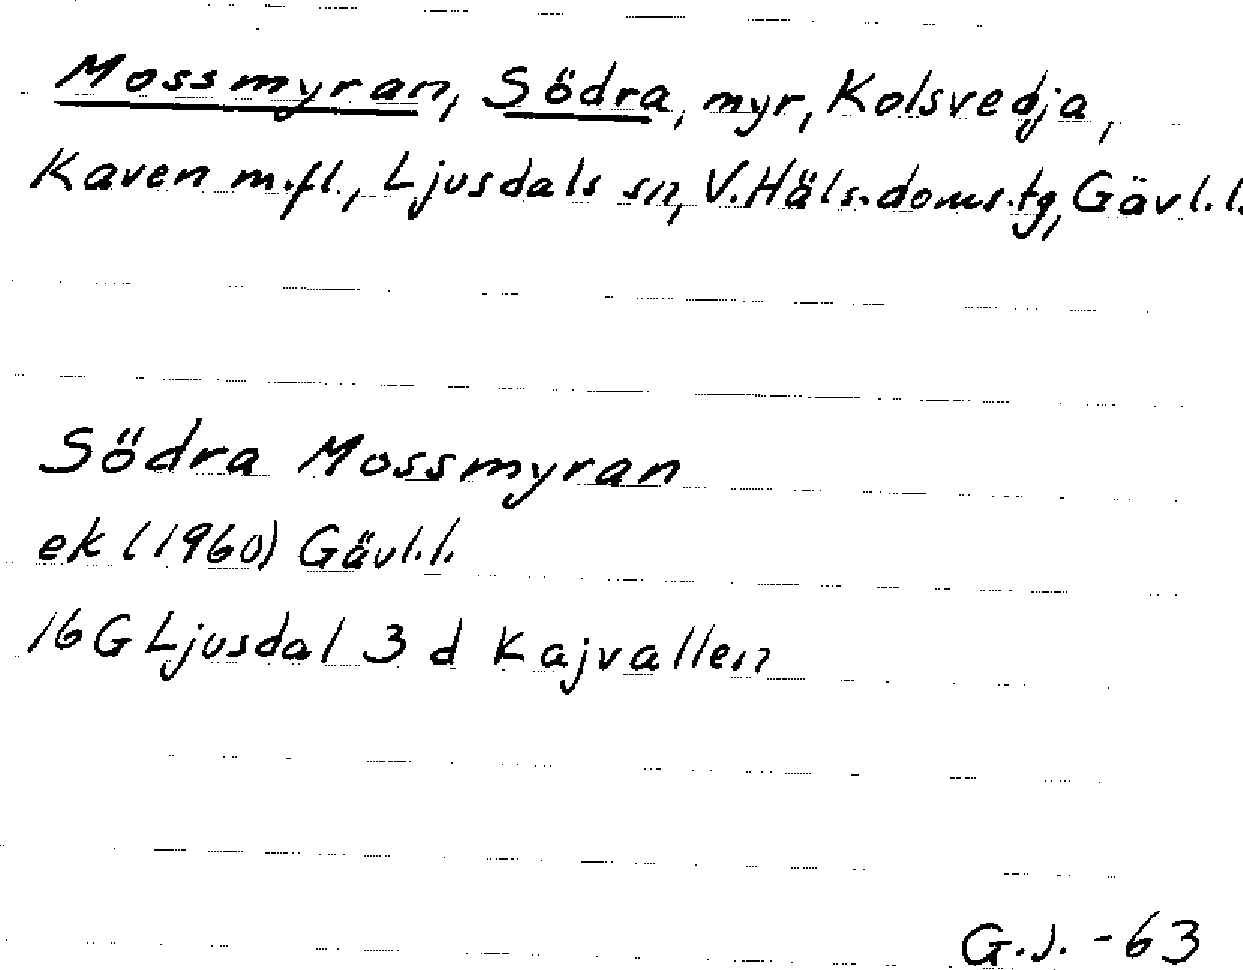 Mossmyran, Södra, myr, Kolsvedja,
Kaven m.fl., Ljusdals sn, V.Häls.doms.tg, Gävl.l.
Södra Mossmyran
ek (1960) Gävl.l.
16G Ljusdal 3 d Kajvallen
G.J. -63